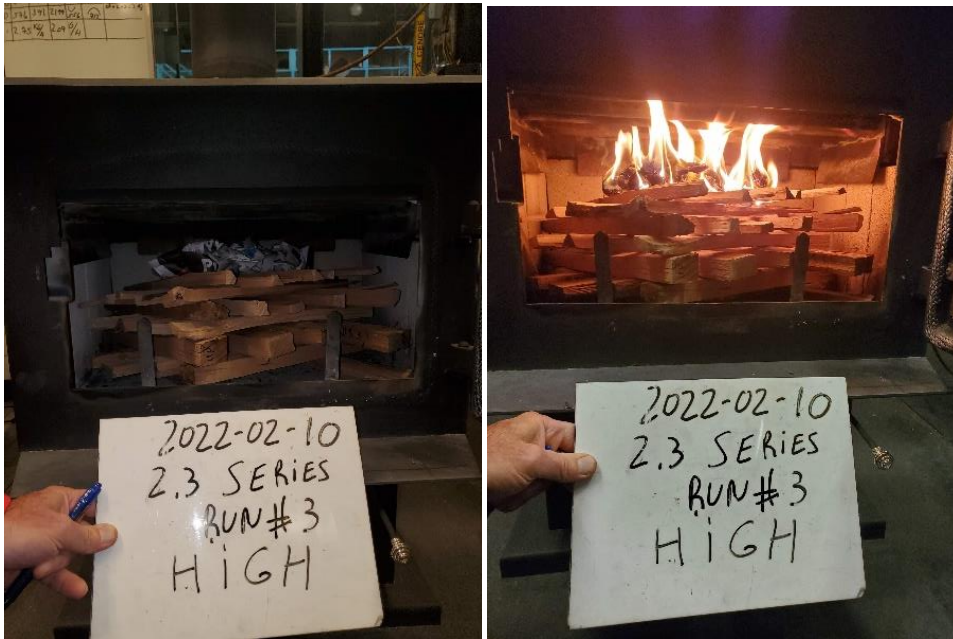 2022-02-10
2.3 SERIES
RUN # 3
HiGH
2022-02-10
2.3 SERiES
RUN # 3
HiGH